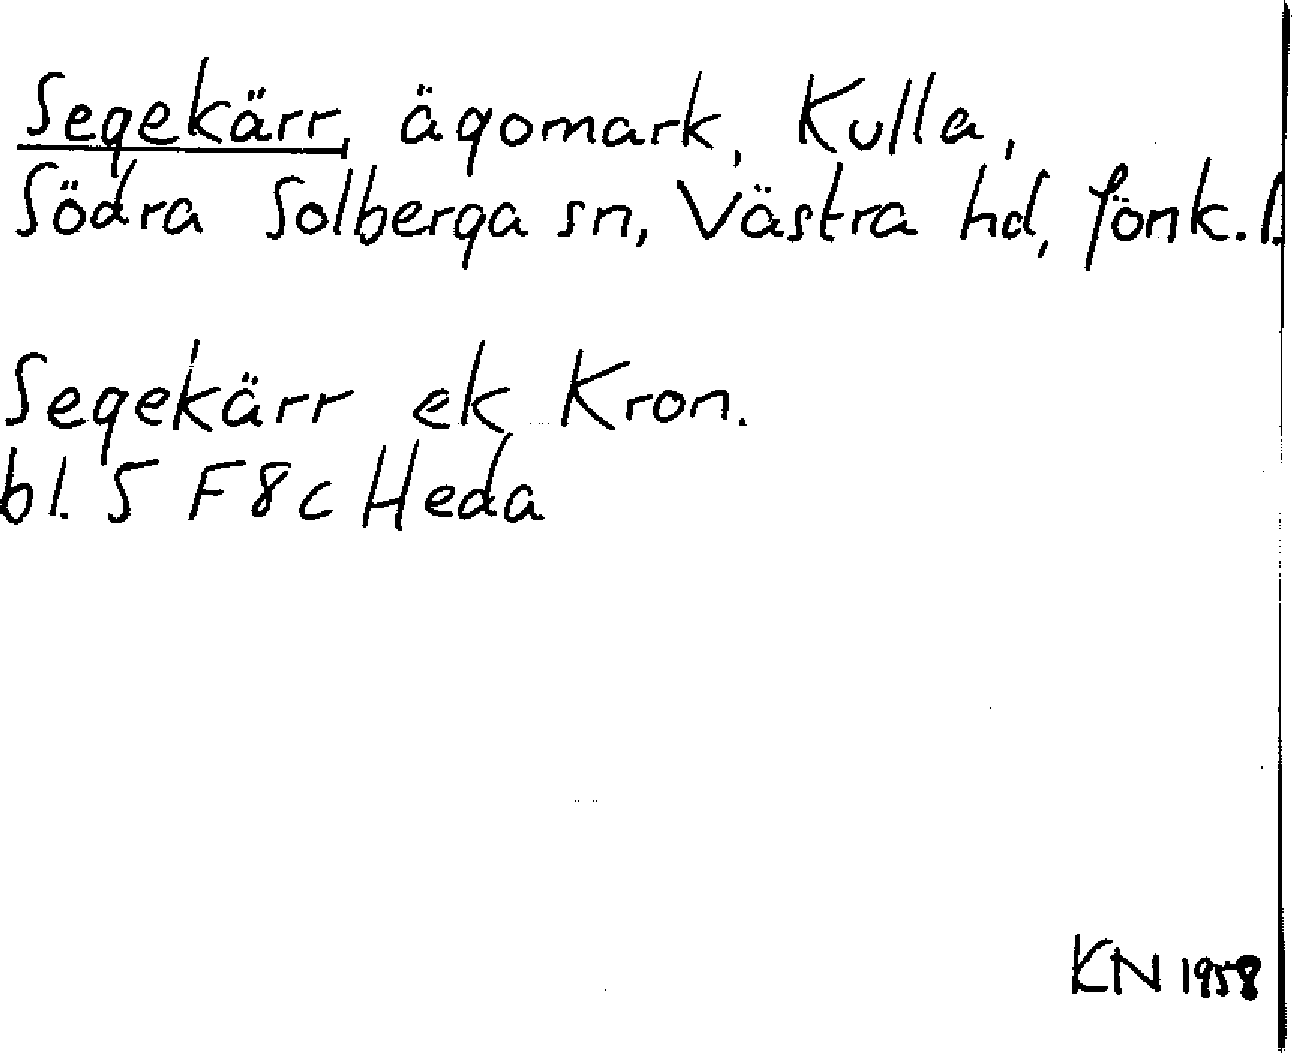 Segekärr, ägomark, Kulla,
Södra Solberga sn, Västra hd, Jönk.l.
Segekärr ek Kron.
bl. 5 F 8 c Heda
KN 1958